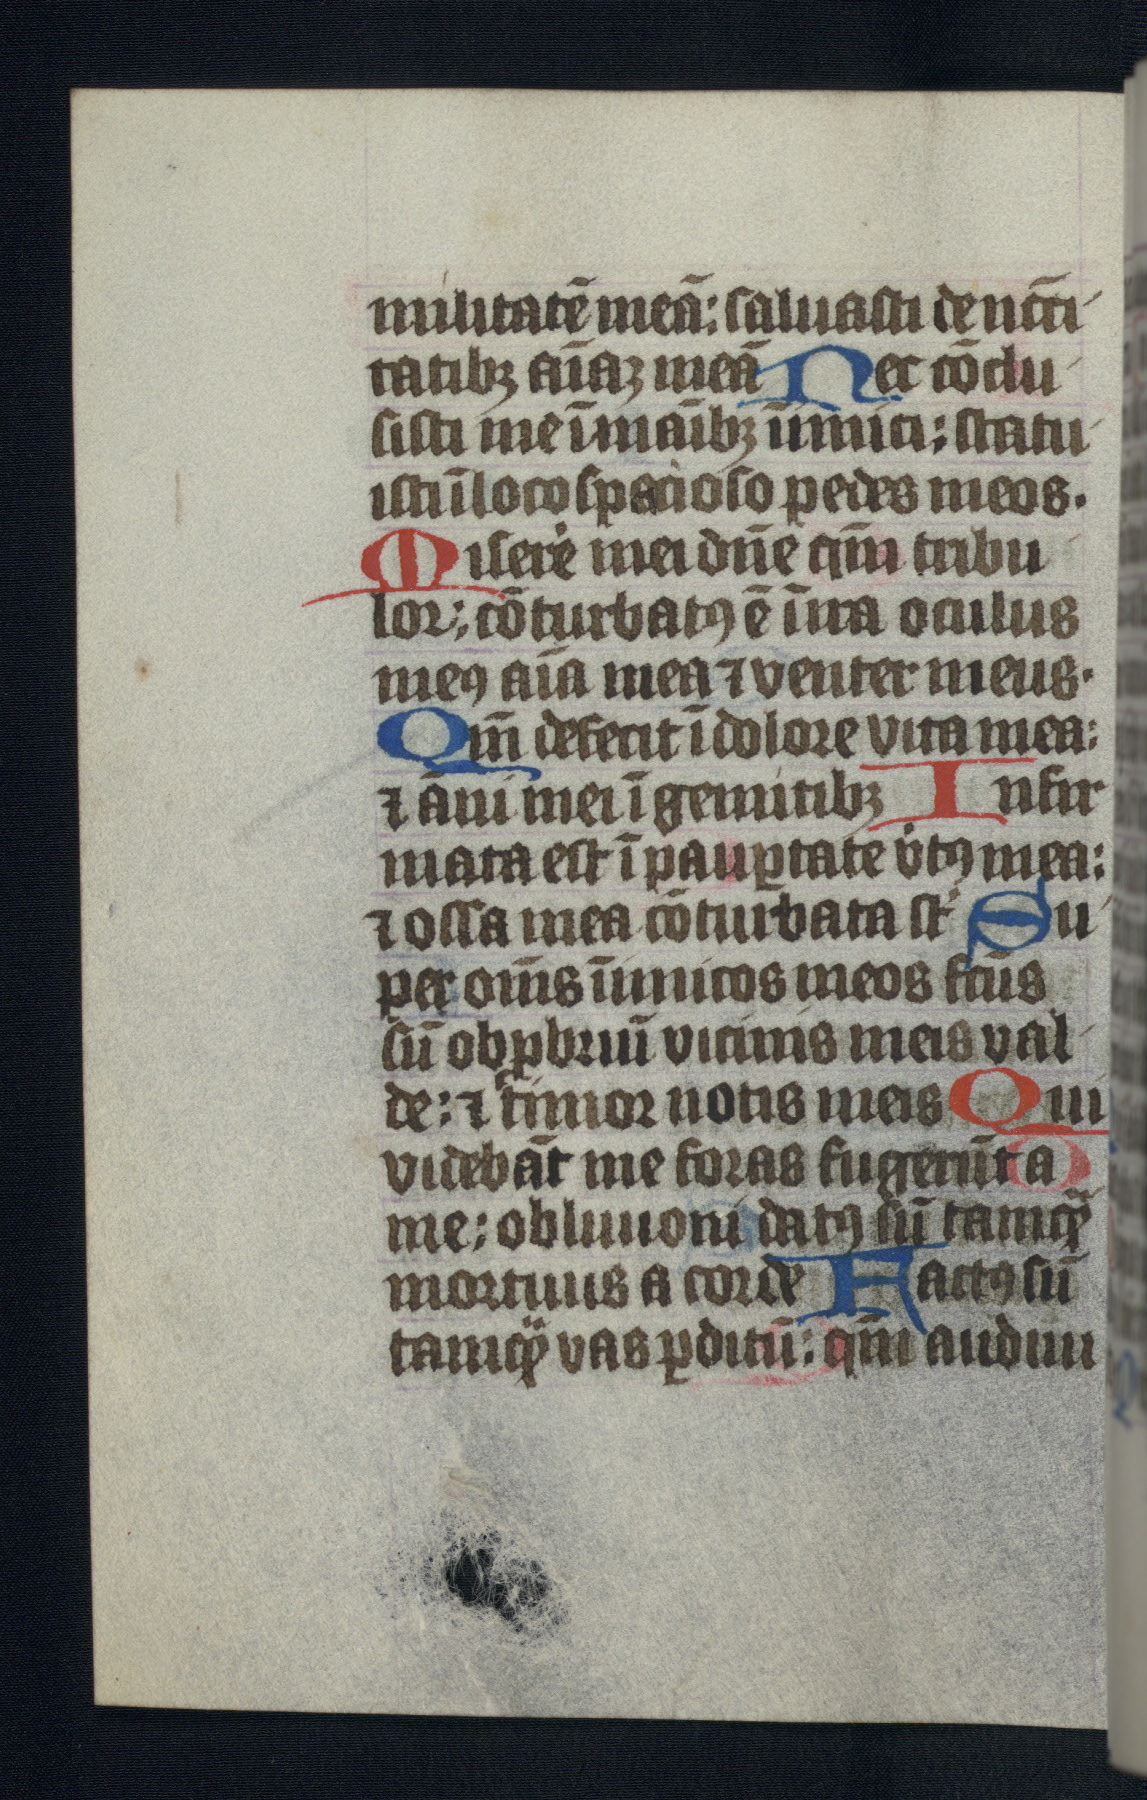 militatē meā: saluasti de nccī
tatibꝫ aīaꝫ meā Nec cōclu
sisti me ī maībꝫ īimici: statu
isti ī loco spacioso pedes meos.
Miserē mei dn̄e qm̄ tribu
lor: cōturbatꝰ ē ī ira oculus
meꝰ aīa mea ⁊ venter meus.
Qm̄ defecit ī dolore vita mea:
⁊ āni mei ī gemitibꝫ Infir
mata est ī paupꝑtate v̓tꝰ mea:
⁊ ossa mea cōturbata st̄ Su
per om̄s īimicos meos fc̄us
sū obꝓbriū vicinis meis val
de: ⁊ timor notis meis Qui
videbāt me foras fugerūt a
me: obliuioni datꝰ sū tamqͣ
mortuus a corde Factꝰ sū
tamqͣ vas ꝑditū: qm̄ audiui